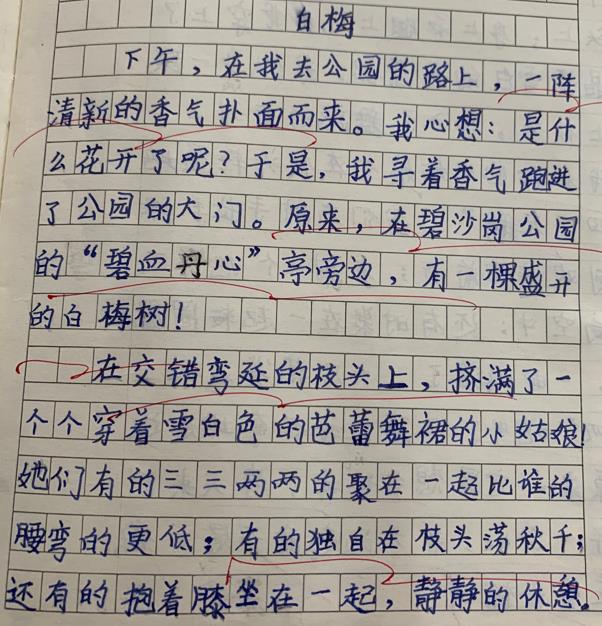 白梅
下午，在我去公园的路上，一阵
清新的香气扑面而来。我心想：是什
么花开了呢？于是，我寻着香气跑进
了公园的大门。原来，在碧沙岗公园
的“碧血丹心”亭旁边，有一棵盛开
的白梅树！
在交错弯延的枝头上，挤满了一
个个穿着雪白色的芭蕾舞裙的小姑娘！
她们有的三三两两的聚在一起比谁的
腰弯的更低；有的独自在枝头荡秋千；
还有的抱着膝坐在一起，静静的休憩。